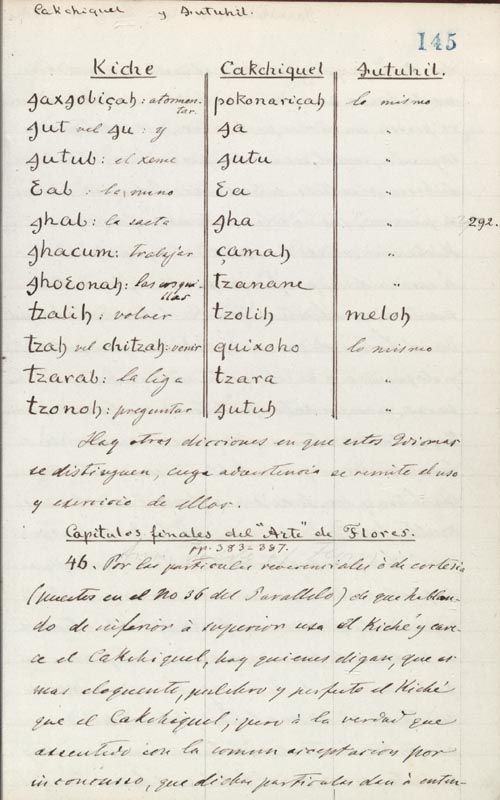 Cakchiquel y Ꜭutuhil.
145
Kiche Cakchiquel Ꜭutuhil.
ꜭaxꜭobiçah: atormentar. pokonariçah lo mismo
ꜭut vel ꜭu: y ꜭa "
ꜭutub: el xeme ꜭutu "
Ɛab : la mano Ɛa "
ꜭhab: la saeta ꜭha " 292.
ꜭhacum: trabajar çamah "
ꜭhoƐonah: las cosquillas tzanane "
tzalih: volver tzolih meloh
tzah vel chitzah: venir quixoho lo mismo
tzarab: la liga tzara "
tzonoh: preguntar ꜭutuh "
Hay otras dicciones en que estos Idiomas
se distinguen, cuya advertencia se remite al uso
y exercicio de ellos.
Capitulos finales del "Arte" de Flores.
pp. 383=387.
46. Por las particulas reverenciales ò de cortesia
(puestas en el No 36 del Parallelo) de que hablan-
do de inferior à superior usa el Kiché y care-
ce el Cakchiquel, hay quienes digan, que es
mas eloquente, pulchro y perfecto el Kiché
que el Cakchiquel; pero à la verdad que
assentido con la comun acceptacion por
inconcusso, que dichas particulas dan à enten-